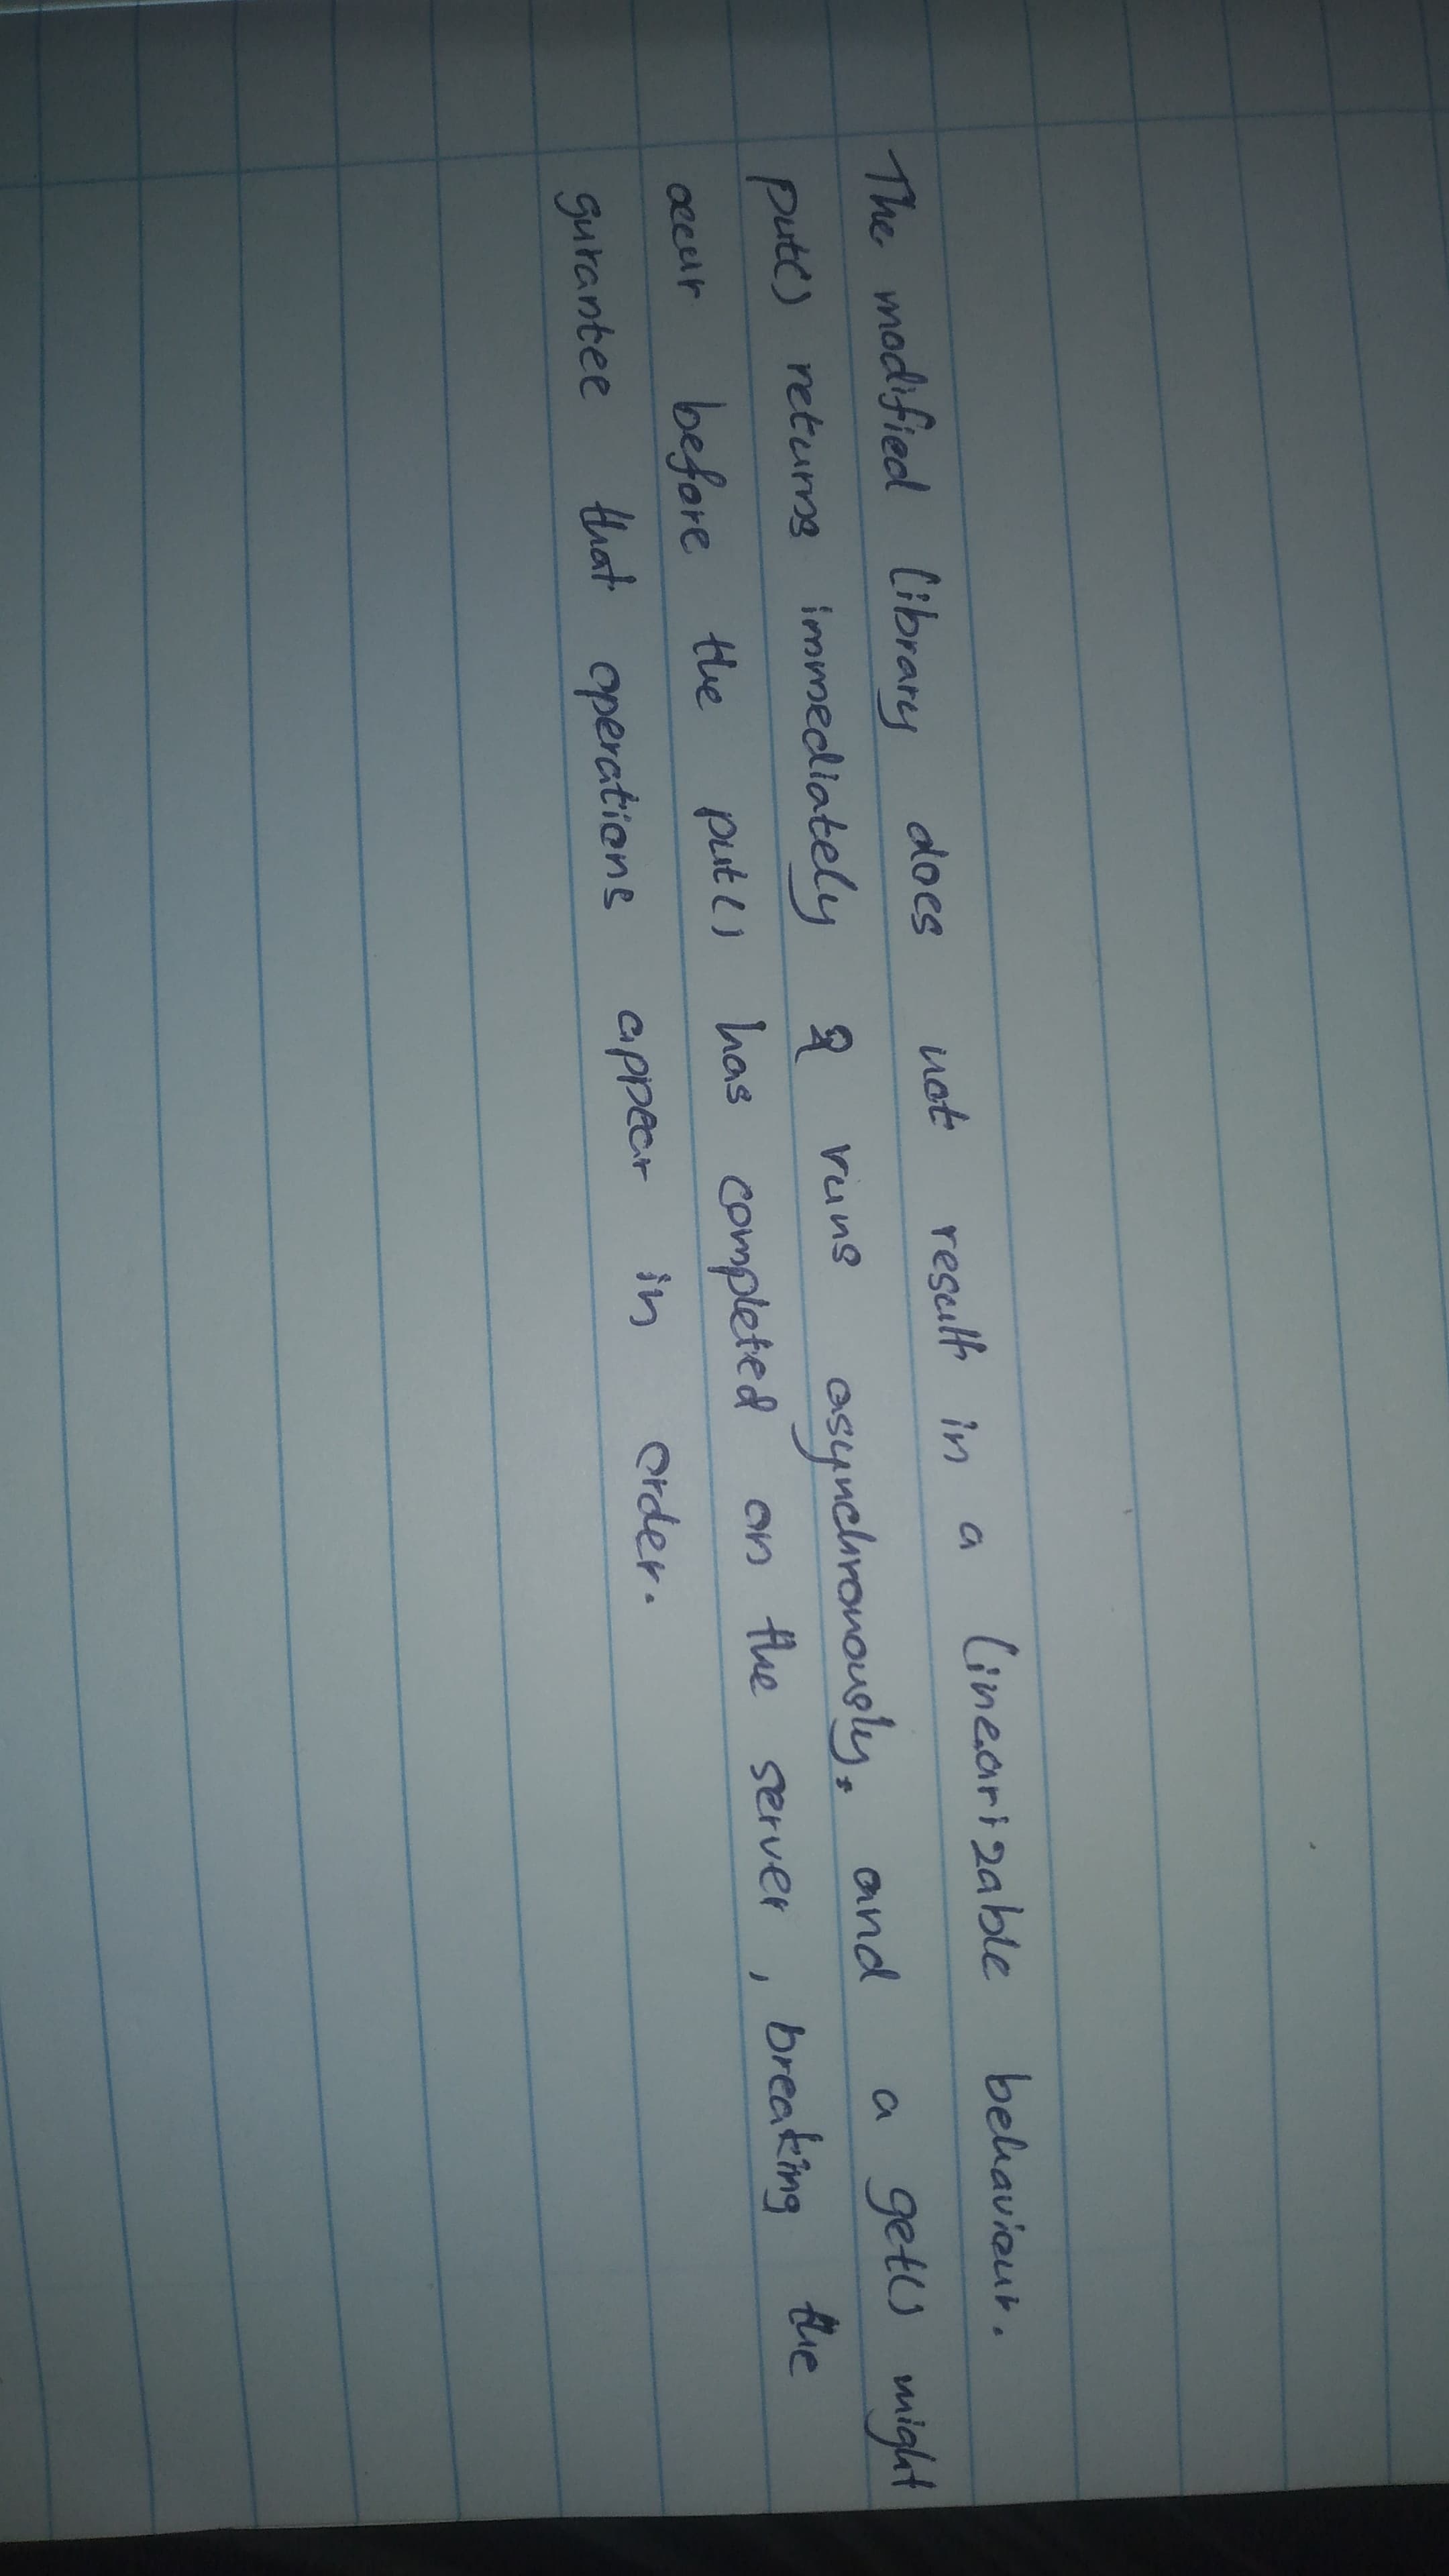 The modified library does not result in a linearizable behaviour.
put() returns immediately & runs asynchronously, and a get() might
occur before the put() has completed on the server, breaking the
gurantee that operations appear in order.